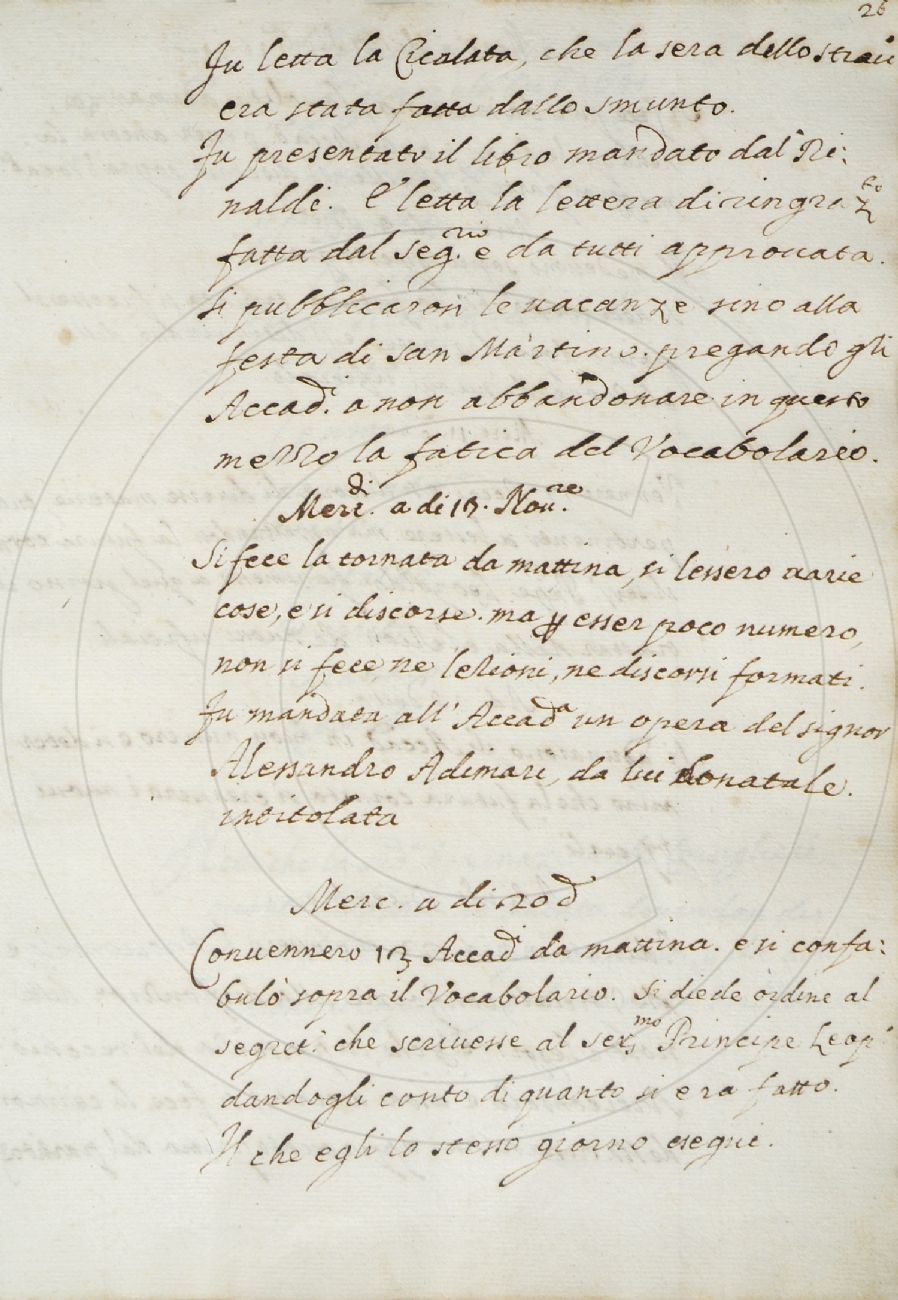 26
Fu letta la Cicalata, che la sera dello strav.
era stata fatta dallo smunto.
Fu presentato il libro mandato dal Ri:
naldi. E' letta la lettera di ringraz.to
fatta dal seg.rio e da tutti approuata.
Si pubblicaron le uacanze sino alla
festa di San Martino. pregando gli
Accad.i a non abbandonare in questo
mezzo la fatica del Vocabolario.
Merc.di a di 13. Nou.re
Si fece la tornata da mattina, si lessero uarie
cose, e si discorse. ma ꝑ esser poco numero,
non si fece ne lezioni, ne discorsi formati.
Fu mandata all' Accad.a un opera del signor
Alessandro Adimari, da lui donatale.
intitolata
Merc. a di 20 d.
Conuennero 13 Accad.i da mattina. e si confa:
bulò sopra il Vocabolario. Si diede ordine al
segret.o che scriuesse al Ser.mo Principe Leop.o
dandogli conto di quanto si era fatto.
Il che egli lo stesso giorno eseguì.